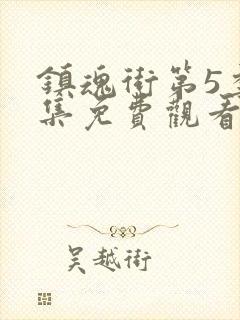 鎮魂街第5季
集免費觀看
吴越街